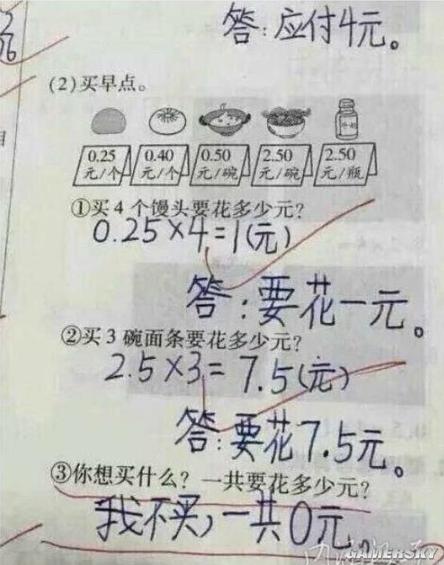 答:应付4元。
(2)买早点。
0.25 0.40 0.50 2.50 2.50
元/个 元/个 元/碗 元/碗 元/瓶
①买4个馒头要花多少元?
0.25×4=1(元)
答:要花一元。
②买3碗面条要花多少元?
2.5×3=7.5(元)
答:要花7.5元。
③你想买什么?一共要花多少元?
我不买,一共0元
GAMERSKY